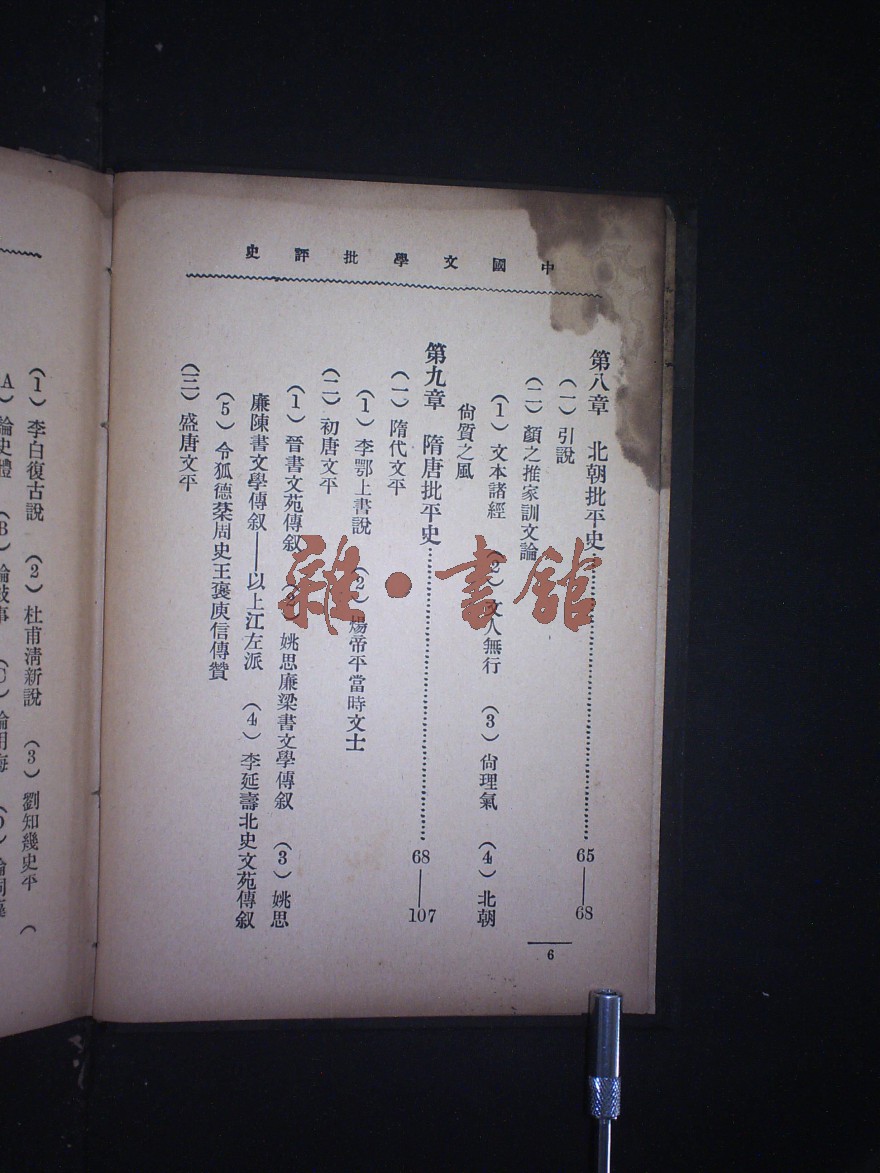 中國文學批評史
第八章 北朝批平史 65—68
(一) 引說
(二) 顏之推家訓文論
(1) 文本諸經 (2) 文人無行 (3) 尙理氣 (4) 北朝
尙質之風
第九章 隋唐批平史 68—107
(一) 隋代文平
(1) 李鄂上書說 (2) 煬帝平當時文士
(二) 初唐文平
(1) 晉書文苑傳叙 (2) 姚思廉梁書文學傳叙 (3) 姚思
廉陳書文學傳叙——以上江左派 (4) 李延壽北史文苑傳叙
(5) 令狐德棻周史王褒庾信傳贊
(三) 盛唐文平
6
(1) 李白復古說 (2) 杜甫淸新說 (3) 劉知幾史平 (
A) 論史體 (B)
雜·書舘